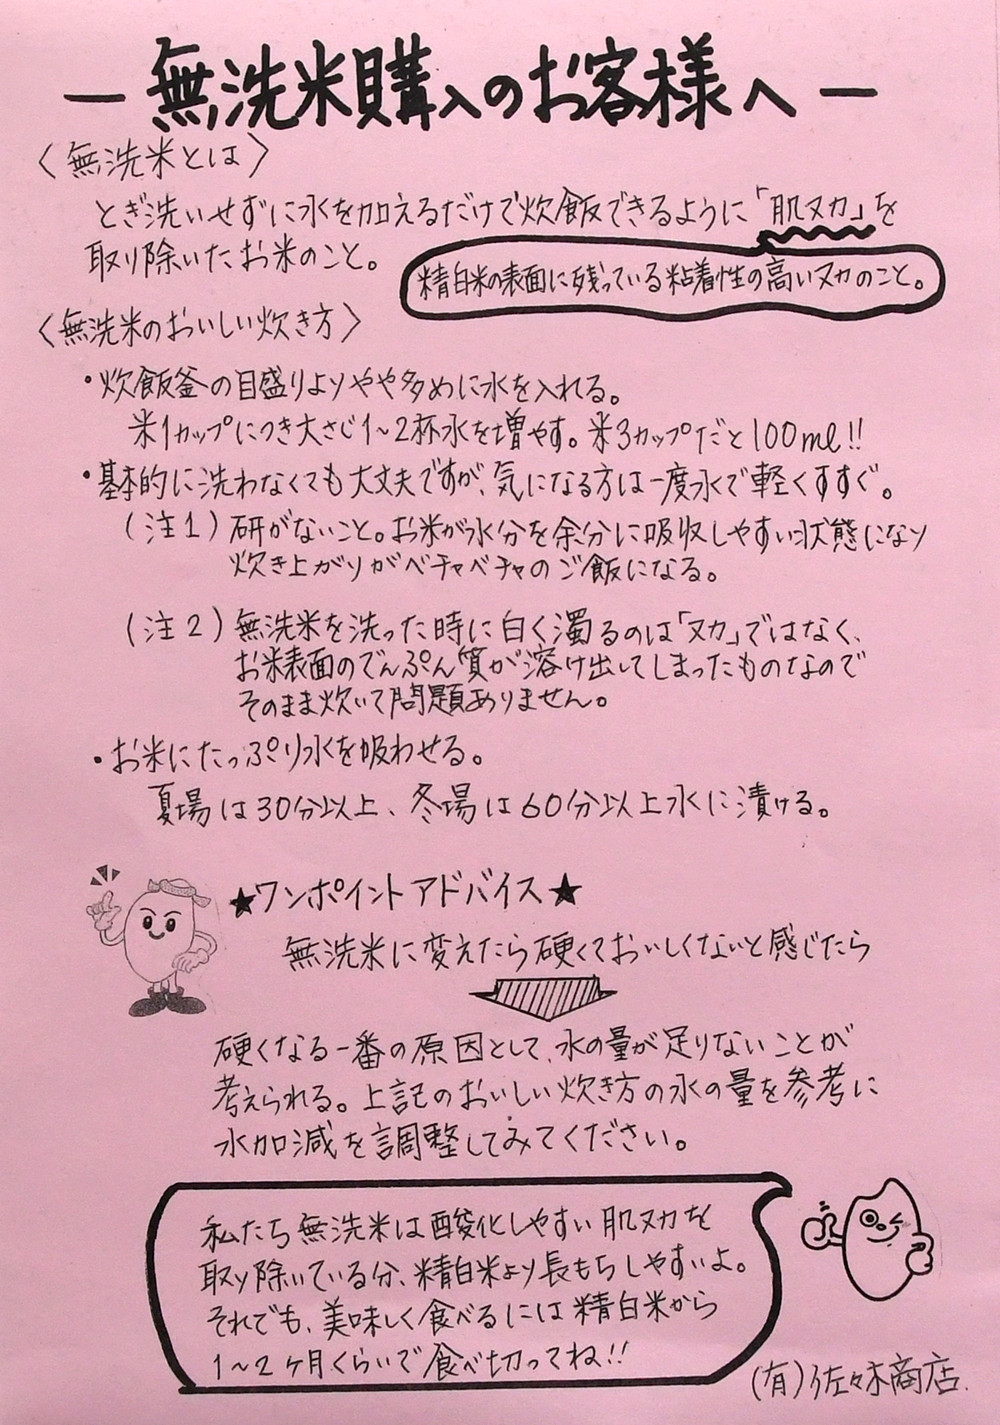 ― 無洗米購入のお客様へ ―
〈無洗米とは〉
とぎ洗いせずに水を加えるだけで炊飯できるように「肌ヌカ」を
取り除いたお米のこと。
精白米の表面に残っている粘着性の高いヌカのこと。
〈無洗米のおいしい炊き方〉
・炊飯釜の目盛りよりやや多めに水を入れる。
米1カップにつき大さじ1~2杯水を増やす。米3カップだと100ml!!
・基本的に洗わなくても大丈夫ですが、気になる方は一度水で軽くすすぐ。
(注1) 研がないこと。お米が水分を余分に吸収しやすい状態になり
炊き上がりがベチャベチャのご飯になる。
(注2) 無洗米を洗った時に白く濁るのは「ヌカ」ではなく、
お米表面のでんぷん質が溶け出してしまったものなので
そのまま炊いて問題ありません。
・お米にたっぷり水を吸わせる。
夏場は30分以上、冬場は60分以上水に漬ける。
★ワンポイントアドバイス★
無洗米に変えたら硬くておいしくないと感じたら
硬くなる一番の原因として、水の量が足りないことが
考えられる。上記のおいしい炊き方の水の量を参考に
水加減を調整してみてください。
私たち無洗米は酸化しやすい肌ヌカを
取り除いている分、精白米より長もちしやすいよ。
それでも、美味しく食べるには精白米から
1~2ヶ月くらいで食べ切ってね!!
(有)佐々木商店.